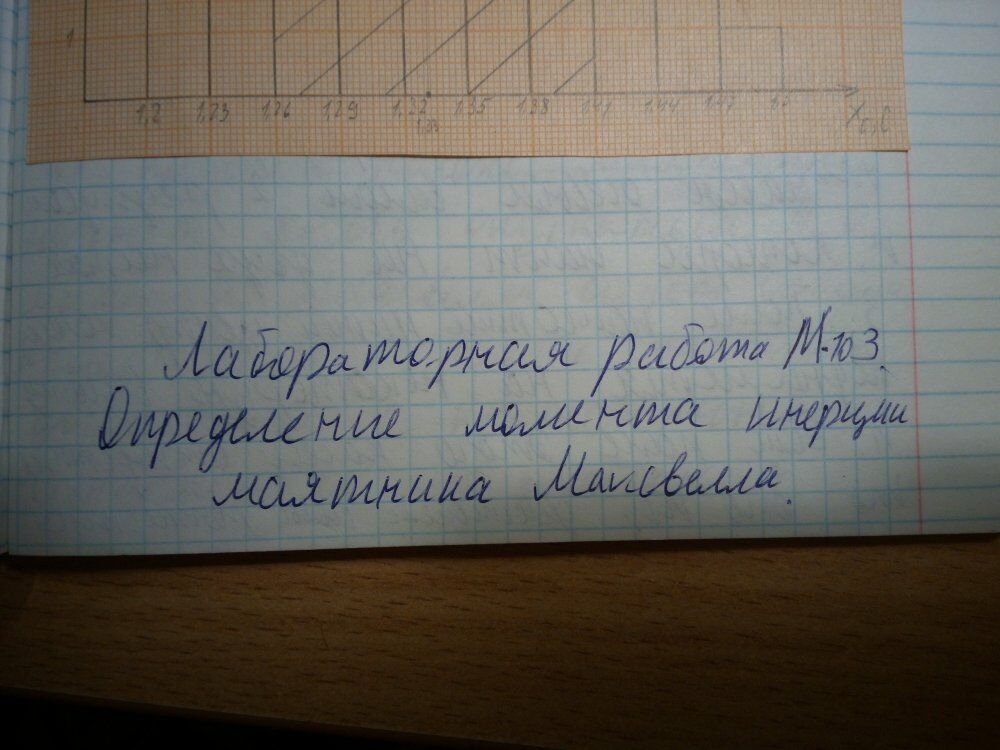 1
1,2 1,23 1,26 1,29 1,32 1,35 1,38 1,41 1,44 1,47 1,5
1,33
Лабораторная работа М-103.
Определение момента инерции
маятника Максвелла.